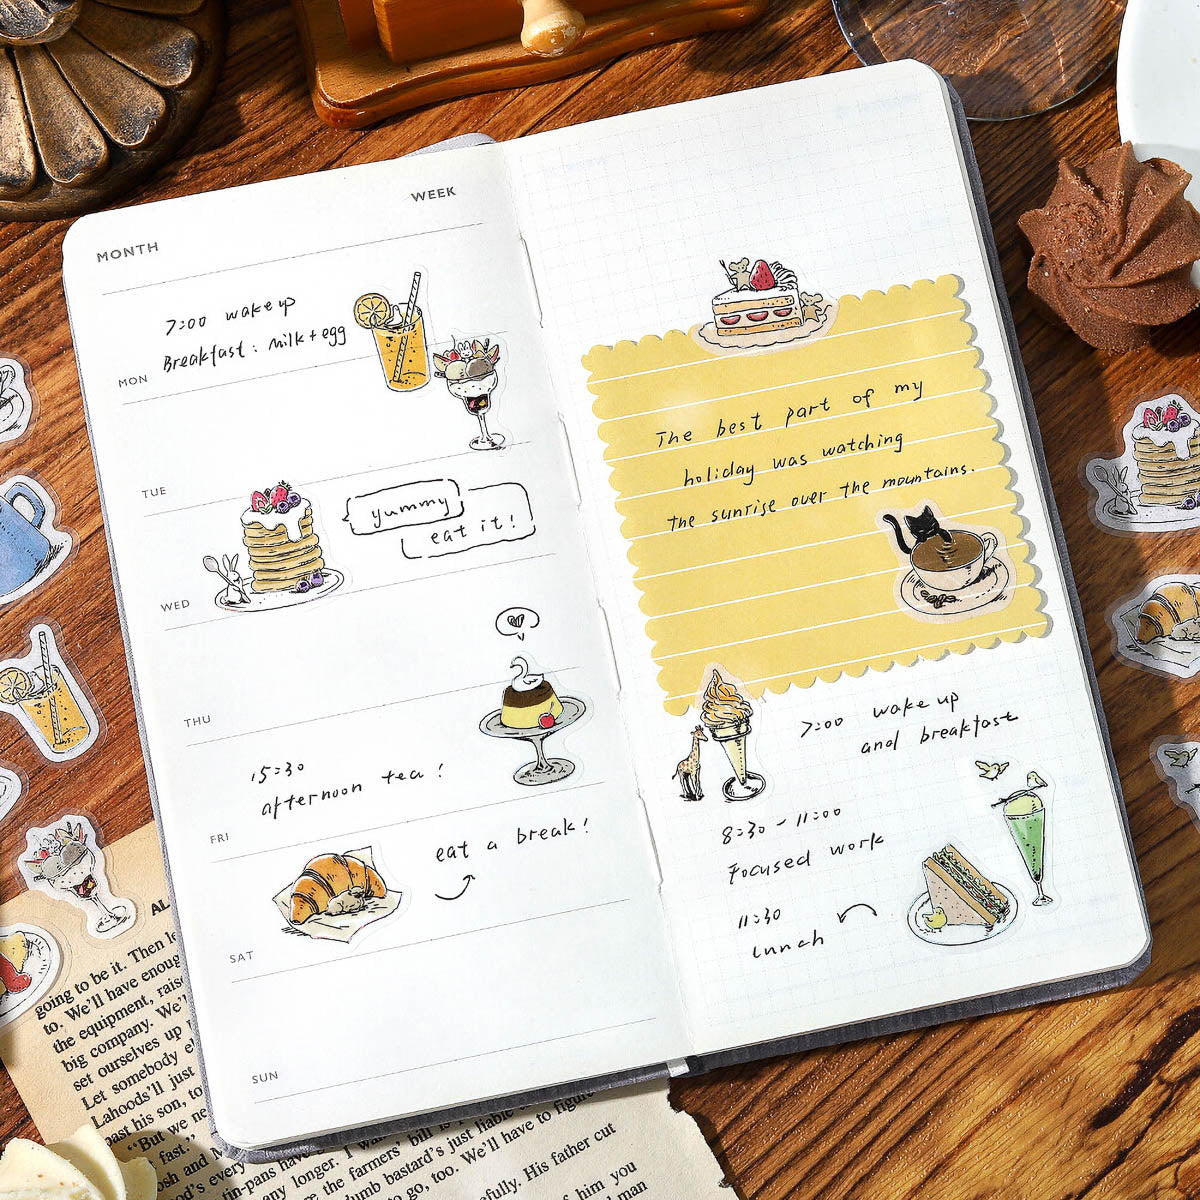 MONTH
WEEK
7:00 wake up
Breakfast: milk + egg
MON
TUE
yummy
eat it!
WED
THU
15:30
afternoon tea!
FRI
eat a break!
SAT
SUN
The best part of my
holiday was watching
the sunrise over the mountains.
7:00 wake up
and breakfast
8:30 - 11:00
Focused work
11:30
Lunch
AL
going to be it. Then le
to. We'll have enoug
the equipment, raise
big company. We'l
set ourselves up
Let somebody el
Lahoods'll just
past his son, to
"But we ne
fast."
osh and M
od's every
tin-pans hav
any longer. I wa
are the farmers' bill is
dumb bastard's just liable
to go, too. We'll have to figure
efully. His father cut
of him you
man